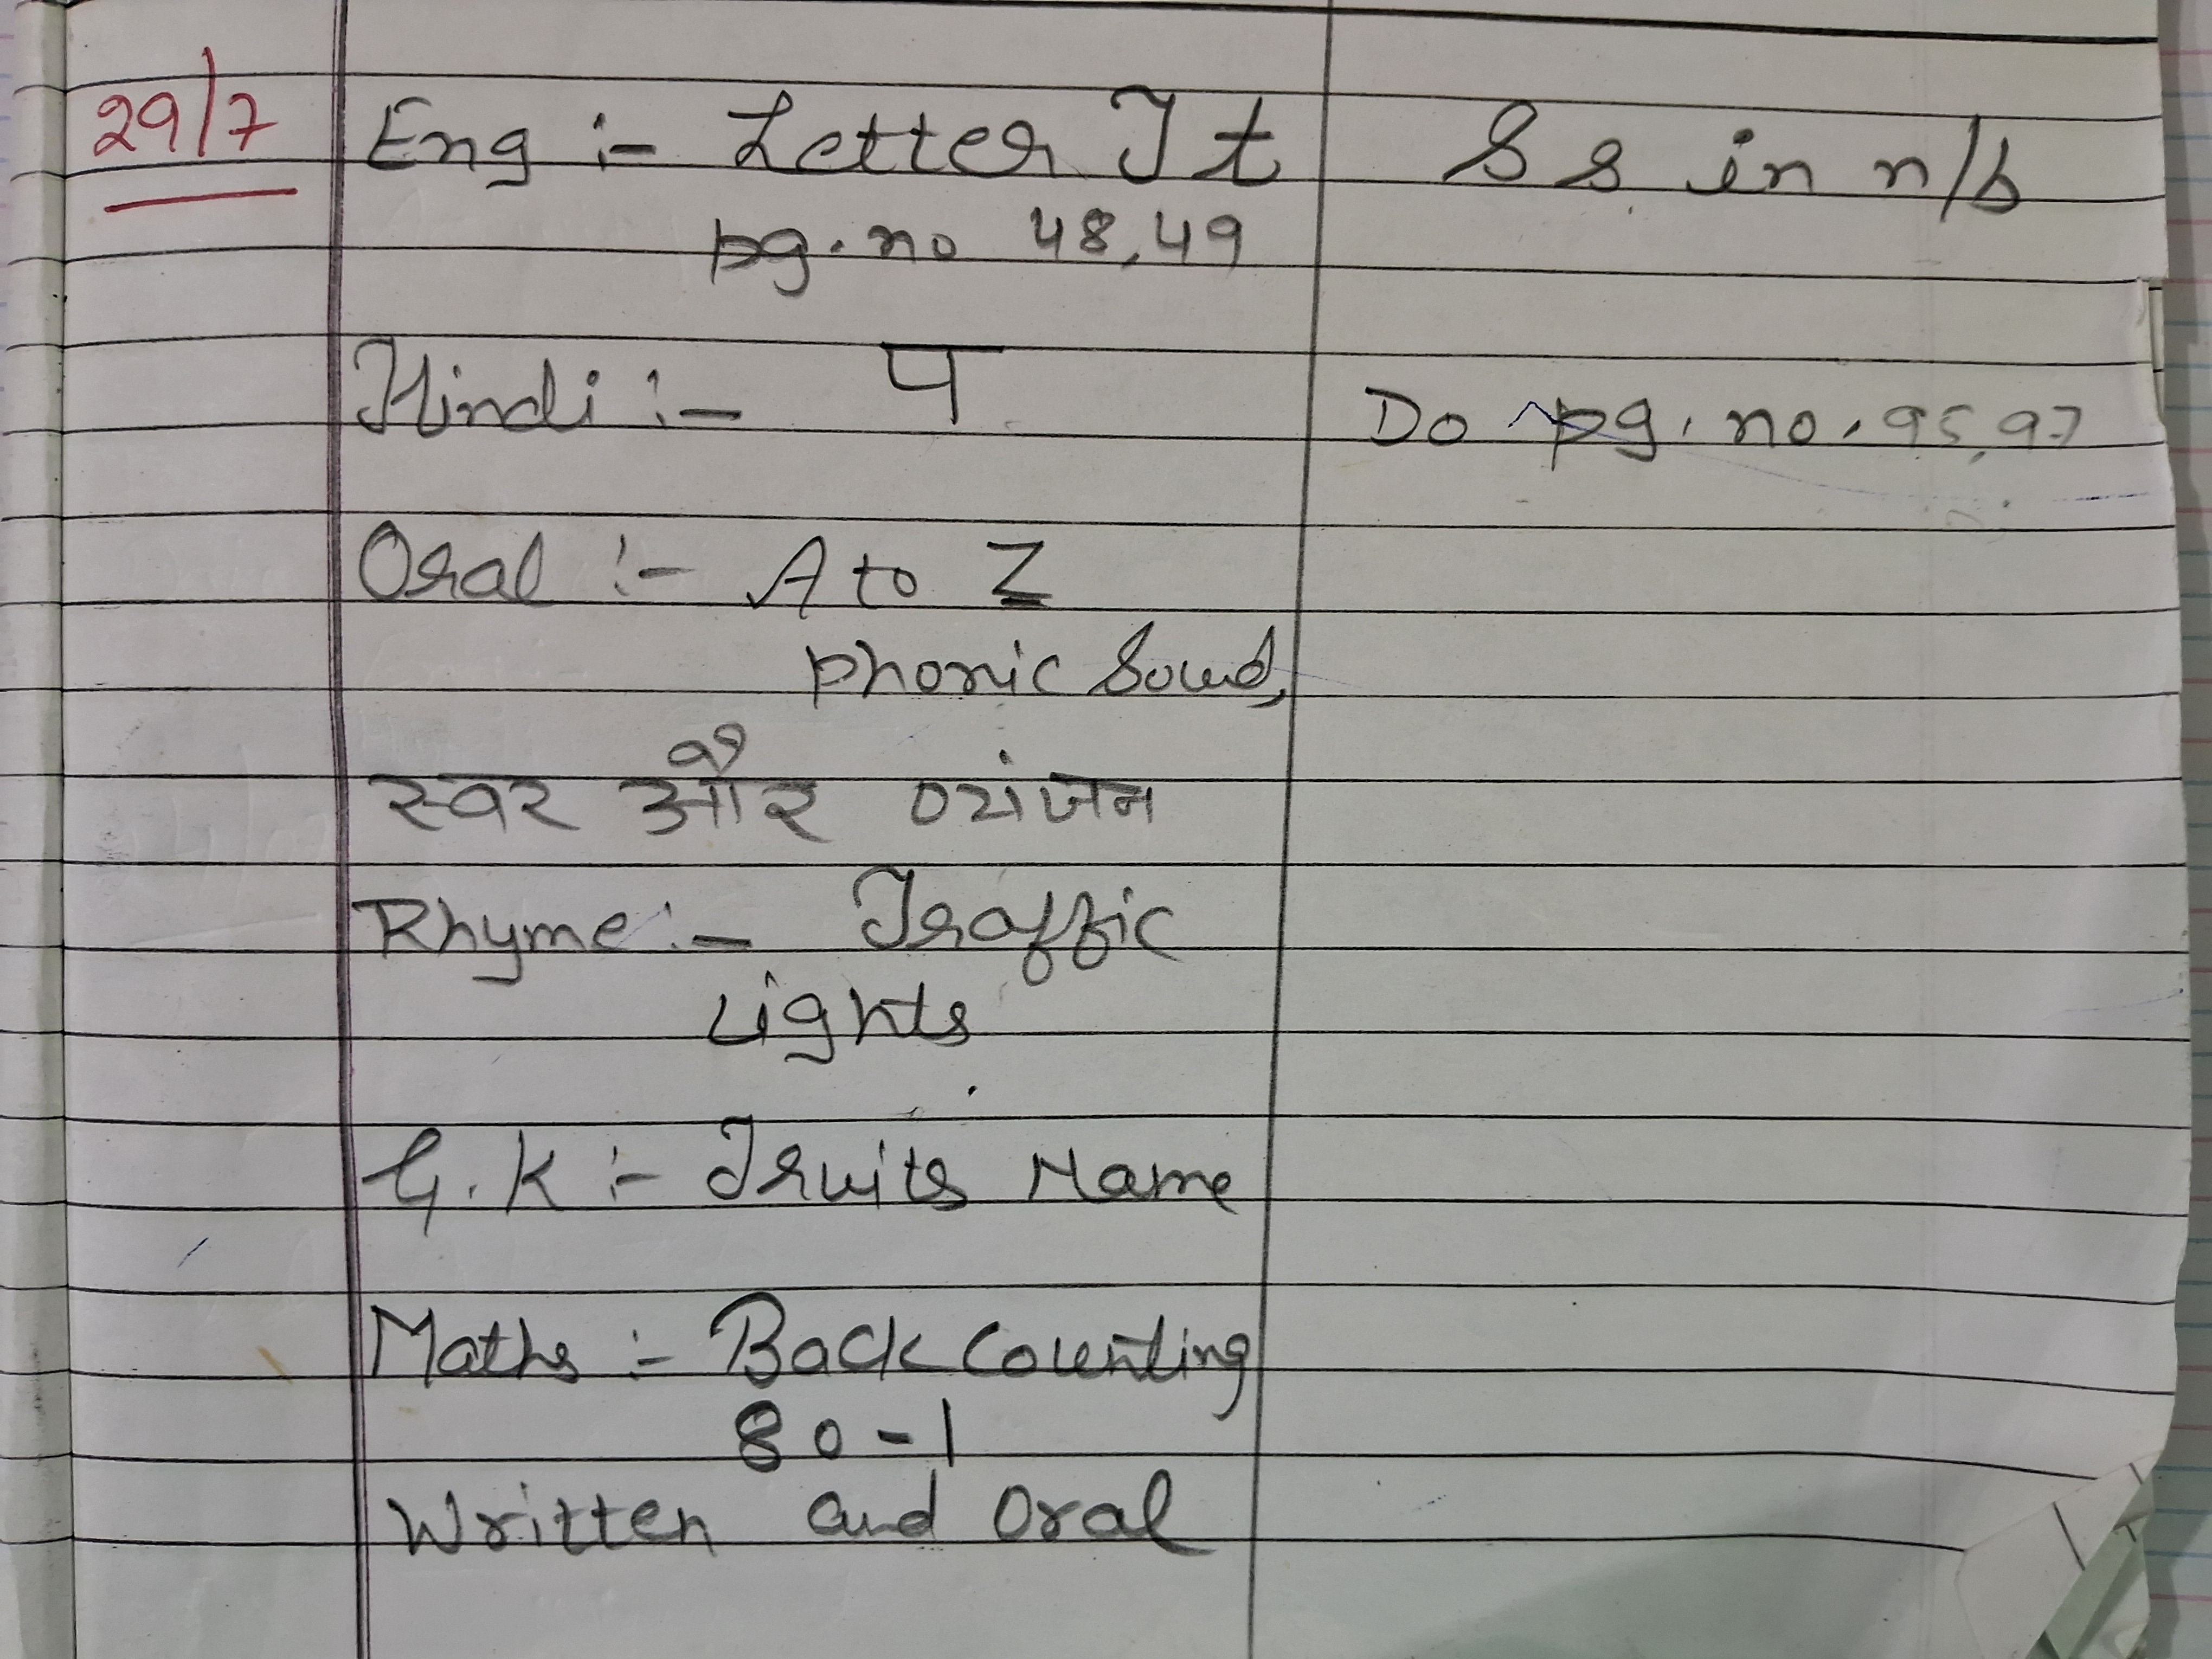 29/7 Eng :- Letter T t S s in n/b
pg. no 48, 49
Hindi :- प Do pg. no. 95, 97
Oral :- A to Z
Phonic Sound,
स्वर और व्यंजन
Rhyme :- Traffic
Lights
G.K :- Fruits Name
Maths :- Back Counting
80-1
Written and Oral